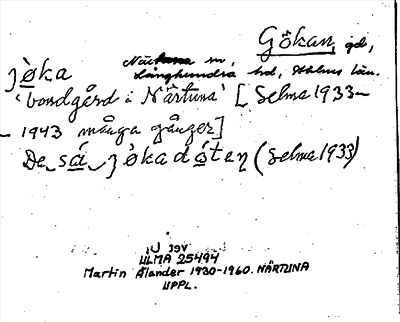 Gökan, gd,
jøka Närtuna sn,
Långhundra hd, Sthlms län.
'bondgård i Närtuna' [Selma 1933–
– 1943 många gånger]
De sá jøkadóteŋ (Selma 1933)
ULMA 25494
Martin Ålander 1930-1960. NÄRTUNA
UPPL.